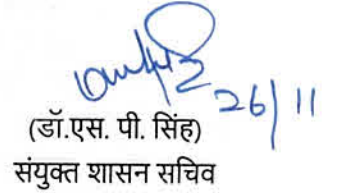 26/11
(डॉ.एस. पी. सिंह)
संयुक्त शासन सचिव